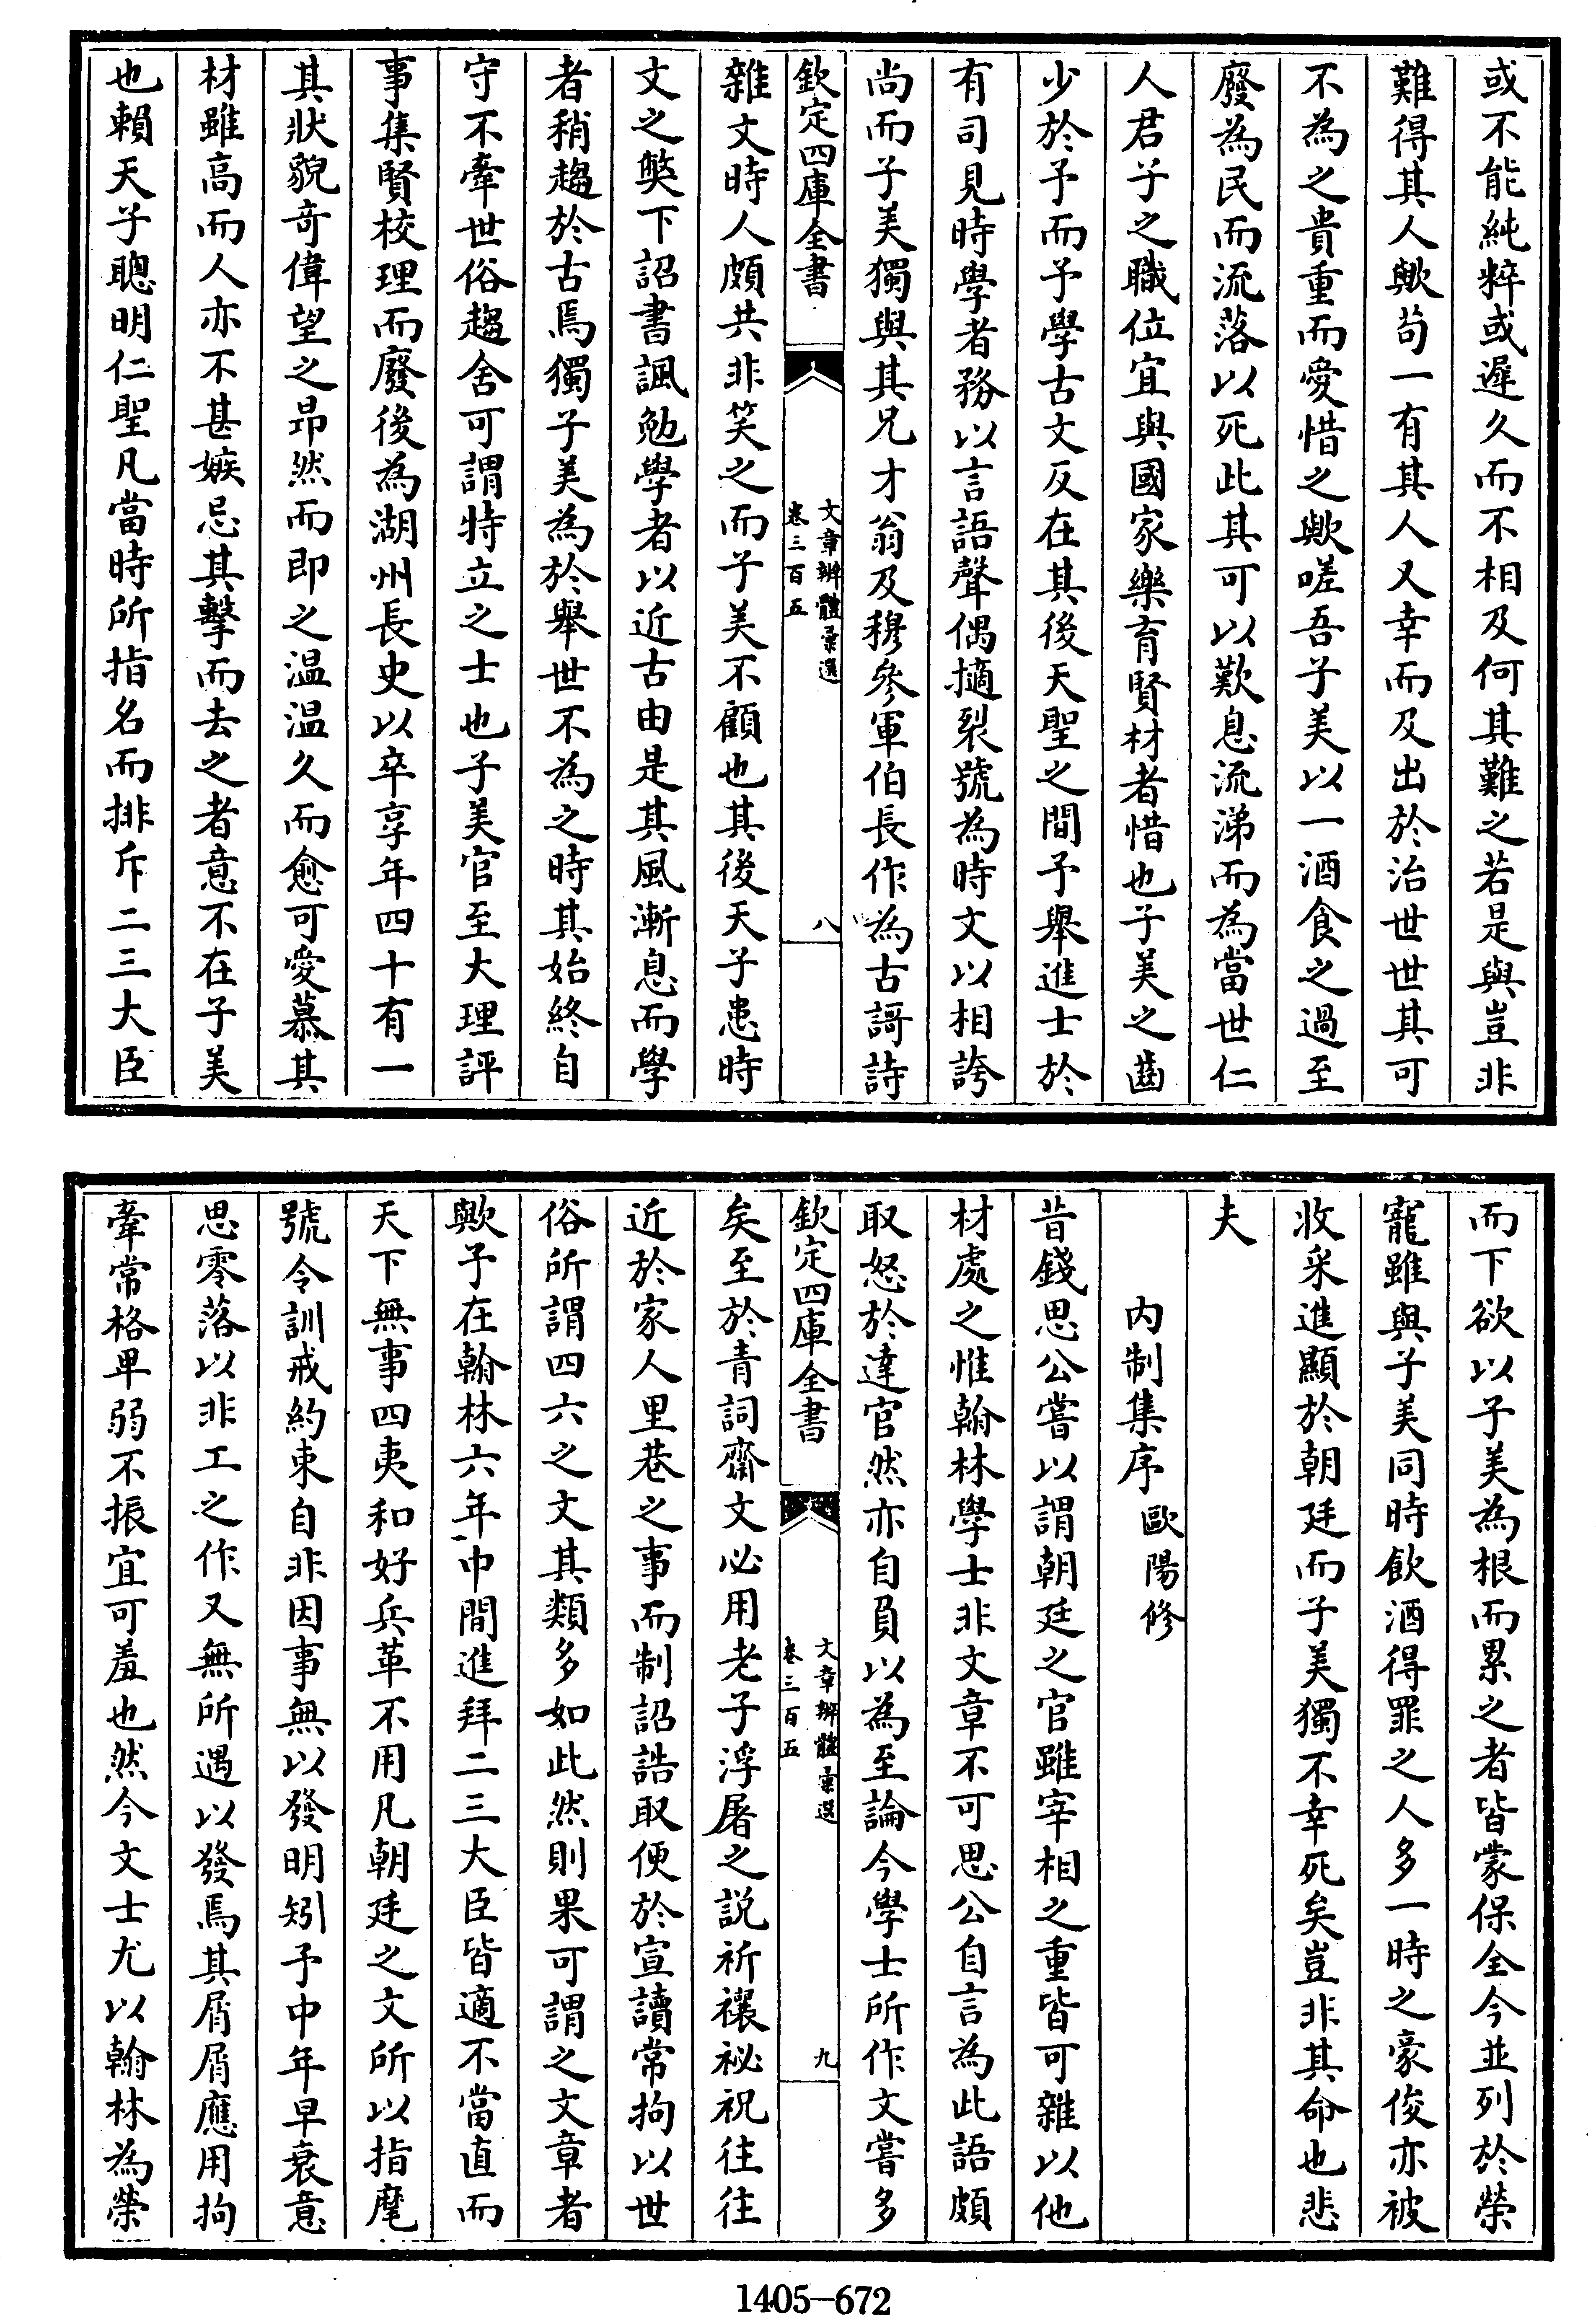 或不能純粹或遲久而不相及何其難之若是與豈非
難得其人歟苟一有其人又幸而及出於治世世其可
不為之貴重而愛惜之歟嗟吾子美以一酒食之過至
廢為民而流落以死此其可以歎息流涕而為當世仁
人君子之職位宜與國家樂育賢材者惜也子美之齒
少於予而予學古文反在其後天聖之間予舉進士於
有司見時學者務以言語聲偶擿裂號為時文以相誇
尚而子美獨與其兄才翁及穆參軍伯長作為古謌詩
欽定四庫全書
文章辨體彙選
卷三百五
八
雜文時人頗共非笑之而子美不顧也其後天子患時
文之獘下詔書諷勉學者以近古由是其風漸息而學
者稍趨於古焉獨子美為於舉世不為之時其始終自
守不牽世俗趨舍可謂特立之士也子美官至大理評
事集賢校理而廢後為湖州長史以卒享年四十有一
其狀貌奇偉望之昂然而即之温温久而愈可愛慕其
材雖高而人亦不甚嫉忌其擊而去之者意不在子美
也賴天子聰明仁聖凡當時所指名而排斥二三大臣
而下欲以子美為根而累之者皆蒙保全今並列於榮
寵雖與子美同時飲酒得罪之人多一時之豪俊亦被
收采進顯於朝廷而子美獨不幸死矣豈非其命也悲
夫
内制集序 歐陽修
昔錢思公嘗以謂朝廷之官雖宰相之重皆可雜以他
材處之惟翰林學士非文章不可思公自言為此語頗
取怒於達官然亦自負以為至論今學士所作文嘗多
欽定四庫全書
文章辨體彙選
卷三百五
九
矣至於青詞齋文必用老子浮屠之説祈禳祕祝往往
近於家人里巷之事而制詔誥取便於宣讀常拘以世
俗所謂四六之文其類多如此然則果可謂之文章者
歟予在翰林六年巾間進拜二三大臣皆適不當直而
天下無事四夷和好兵革不用凡朝廷之文所以指麾
號令訓戒約束自非因事無以發明矧予中年早衰意
思零落以非工之作又無所遇以發焉其屑屑應用拘
牽常格卑弱不振宜可羞也然今文士尤以翰林為榮
1405-672